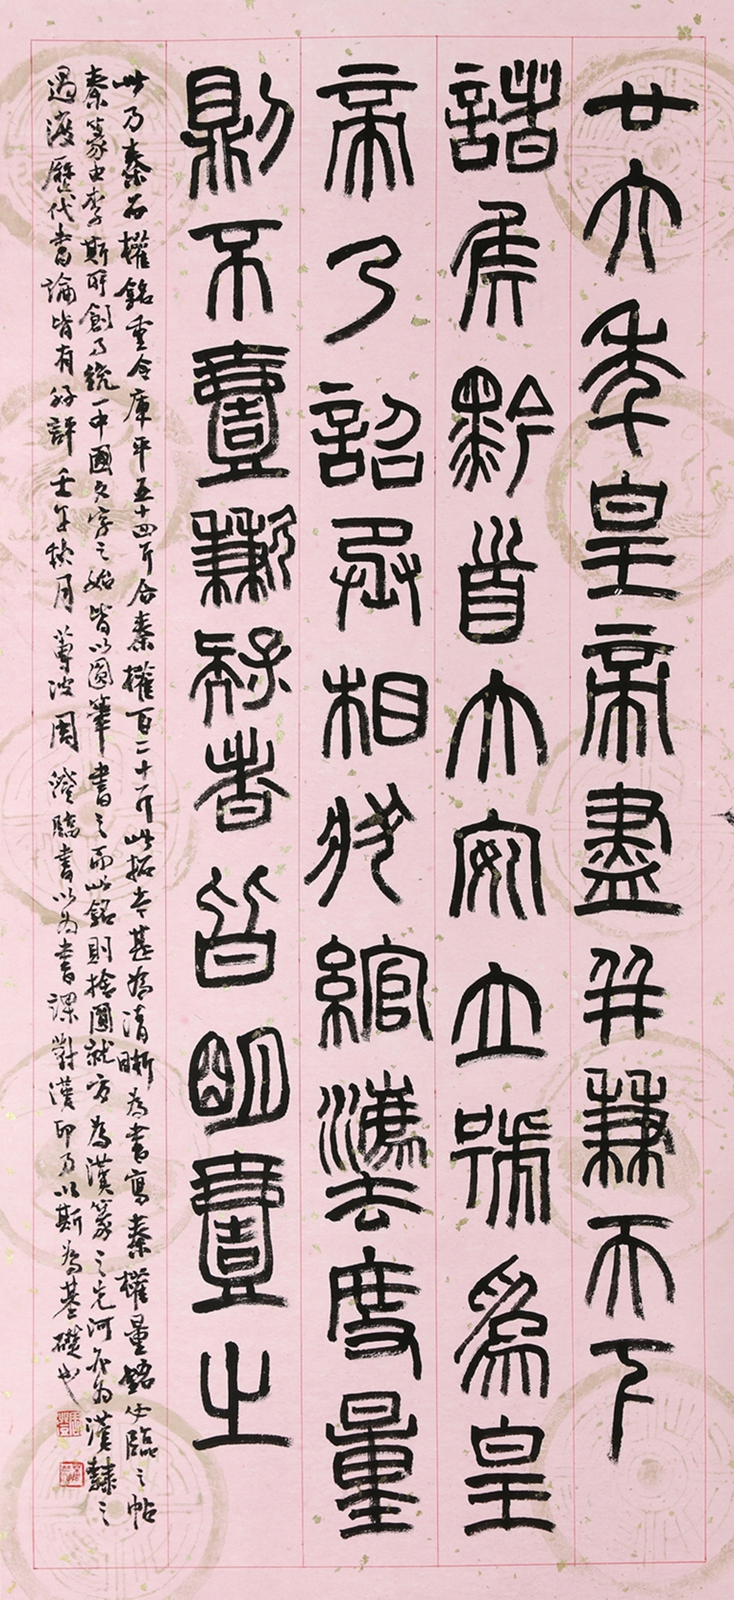 廿六年皇帝盡并兼天下
諸矦黔首大安立號為皇
帝乃詔丞相狀綰灋度量
則不壹歉疑者皆明壹之
此乃秦石權銘重今庫平五十四斤合秦權百二十斤此拓本甚為清晰為書寫秦權量銘必臨之帖
秦篆由李斯所創乃統一中國文字之始皆以圓筆書之而此銘則捨圓就方為漢篆之先河亦為漢隸之
過渡歷代書論皆有好評壬午秋月 波周澄臨書以為書課對漢印乃以斯為基礎也